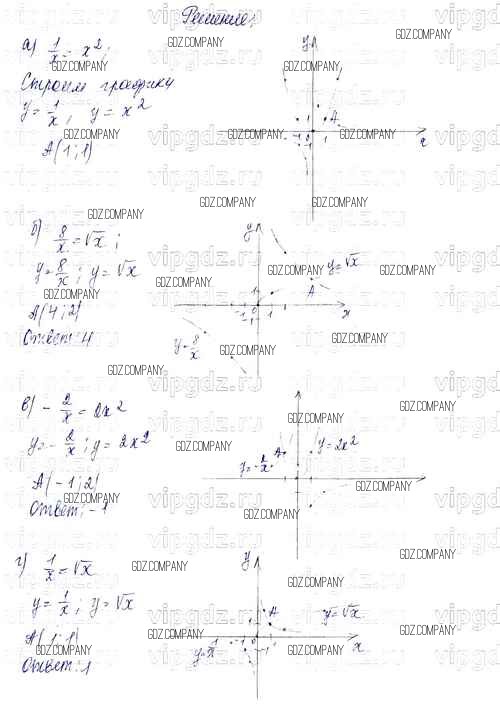 Решение:
а) 1/x = x²;
Строим графики
y = 1/x; y = x²
A(1;1)
y
A
1
-1
1
-1
x
б) 8/x = √x;
y = 8/x; y = √x
A(4;2)
Ответ: 4
y
y = √x
A
1
-1 0 1
-1
x
y = 8/x
в) -2/x = 2x²
y = -2/x; y = 2x²
A(-1;2)
Ответ: -1
y = 2x²
A
y = -2/x
г) 1/x = √x
y = 1/x; y = √x
A(1;1)
Ответ: 1
y
A
y = √x
-1 0 1
x
y = 1/x
GDZ.COMPANY
vipgdz.ru